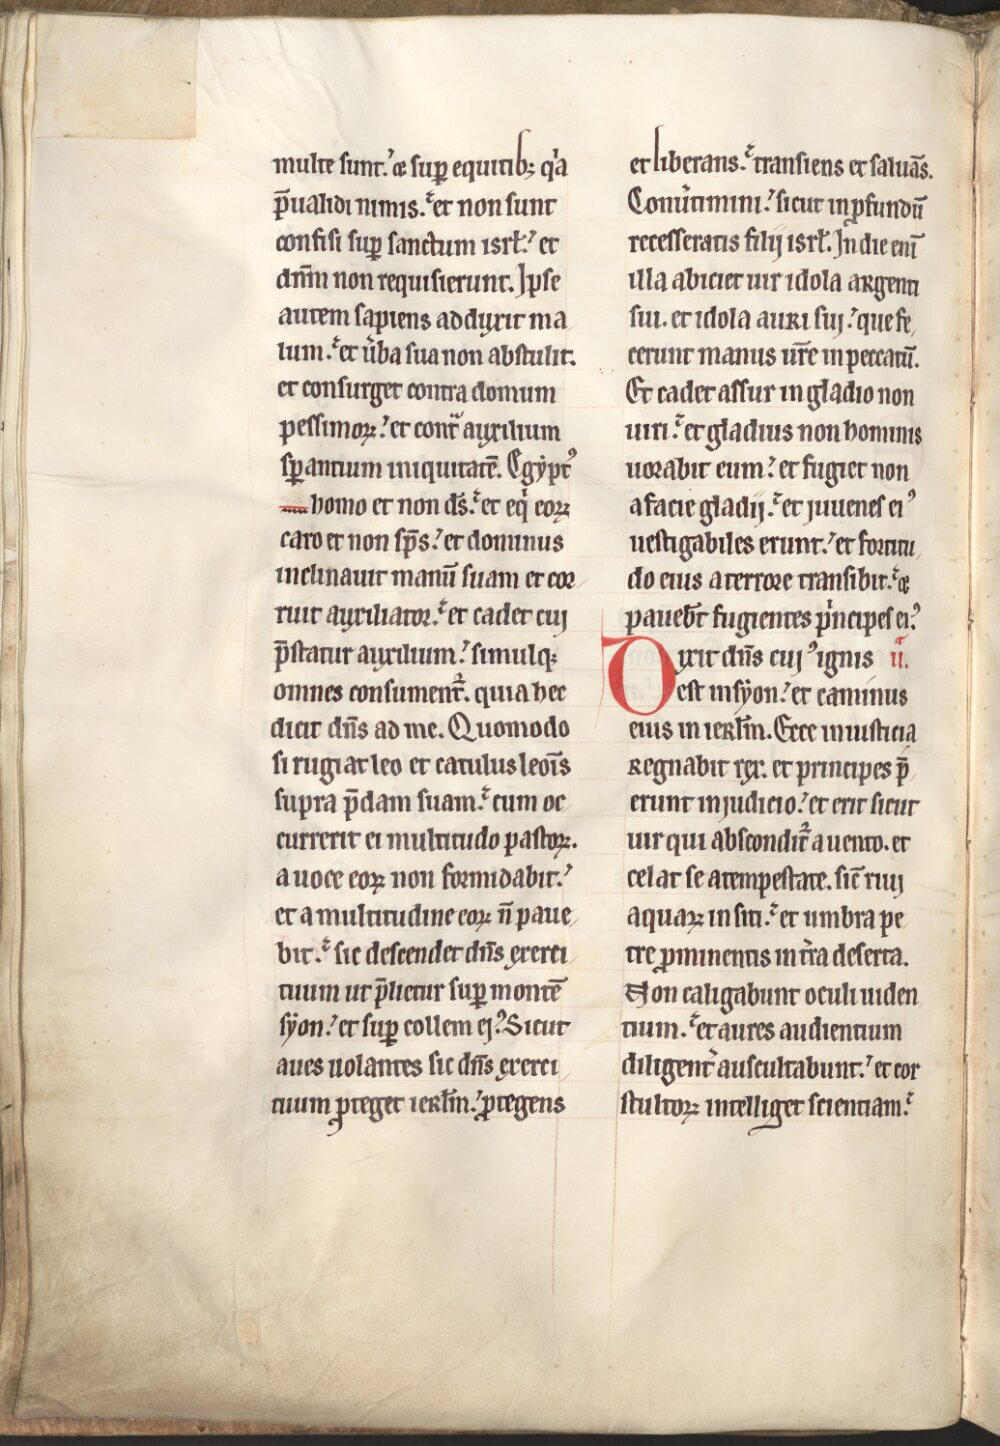 multe sunt. ⁊ sup̱ equitib; qͥa
p̄ualidi nimis. et non sunt
confisi sup̱ sanctum isrł. et
dn̄m non requisierunt. Ipse
autem sapiens adduxit ma
lum. et ũba sua non abstulit.
et consurget contra domum
pessimoꝝ. et contͣ auxilium
sꝑantium iniquitatē. Egẏptꝰ
homo et non ds̄. et eqͥ eoꝝ
caro et non sp̄s. et dominus
inclinauit manū suam et cor
ruit auxiliator. et cadet cuj
p̄statur auxilium. simulq;
omnes consument᷑. quia hec
dicit dn̄s ad me. Quomodo
si rugiat leo et catulus leoīs
supra p̄dam suam. cum oc
currerit ei multitudo pastoꝝ.
a uoce eoꝝ non formidabit.
et a multitudine eoꝝ n̄ paue
bit. sic descendet dn̄s exerci
tuum ut p̄lietur sup̱ montē
sẏon. et sup̱ collem ejꝰ. Sicut
aues uolantes sic dn̄s exerci
tuum ꝓteget ierl̄m. ꝓtegens
et liberans. transiens et saluās.
Conu᷑timini. sicut in ꝓfundū
recesseratis filij isrł. In die eni̅
illa abiciet uir idola argenti
sui. et idola auri suj. que fe
cerunt manus ur̄e in peccatū.
Et cadet assur in gladio non
uiri. et gladius non hominis
uorabit eum. et fugiet non
a facie gladij. et juuenes eiꝰ
uestigabiles erunt. et fortitu
do eius a terrore transibit. ⁊
pauebt̄ fugientes pͥncipes eiꝰ.
Dixit dn̄s cujꝰ ignis ii.ͣ
est in sẏon. et caminus
eius in ierl̄m. Ecce in iusticia
regnabit rex. et principes p̄
erunt in judicio. et erit sicut
uir qui abscondit᷑ a uento. et
celat se a tempestate. sic̄ riuj
aquaꝝ in siti. et umbra pe
tre ꝓminentis in t᷑ra deserta.
Non caligabunt oculi uiden
tium. et aures audientium
diligent᷑ auscultabunt. et cor
stultoꝝ intelliget scientiam.